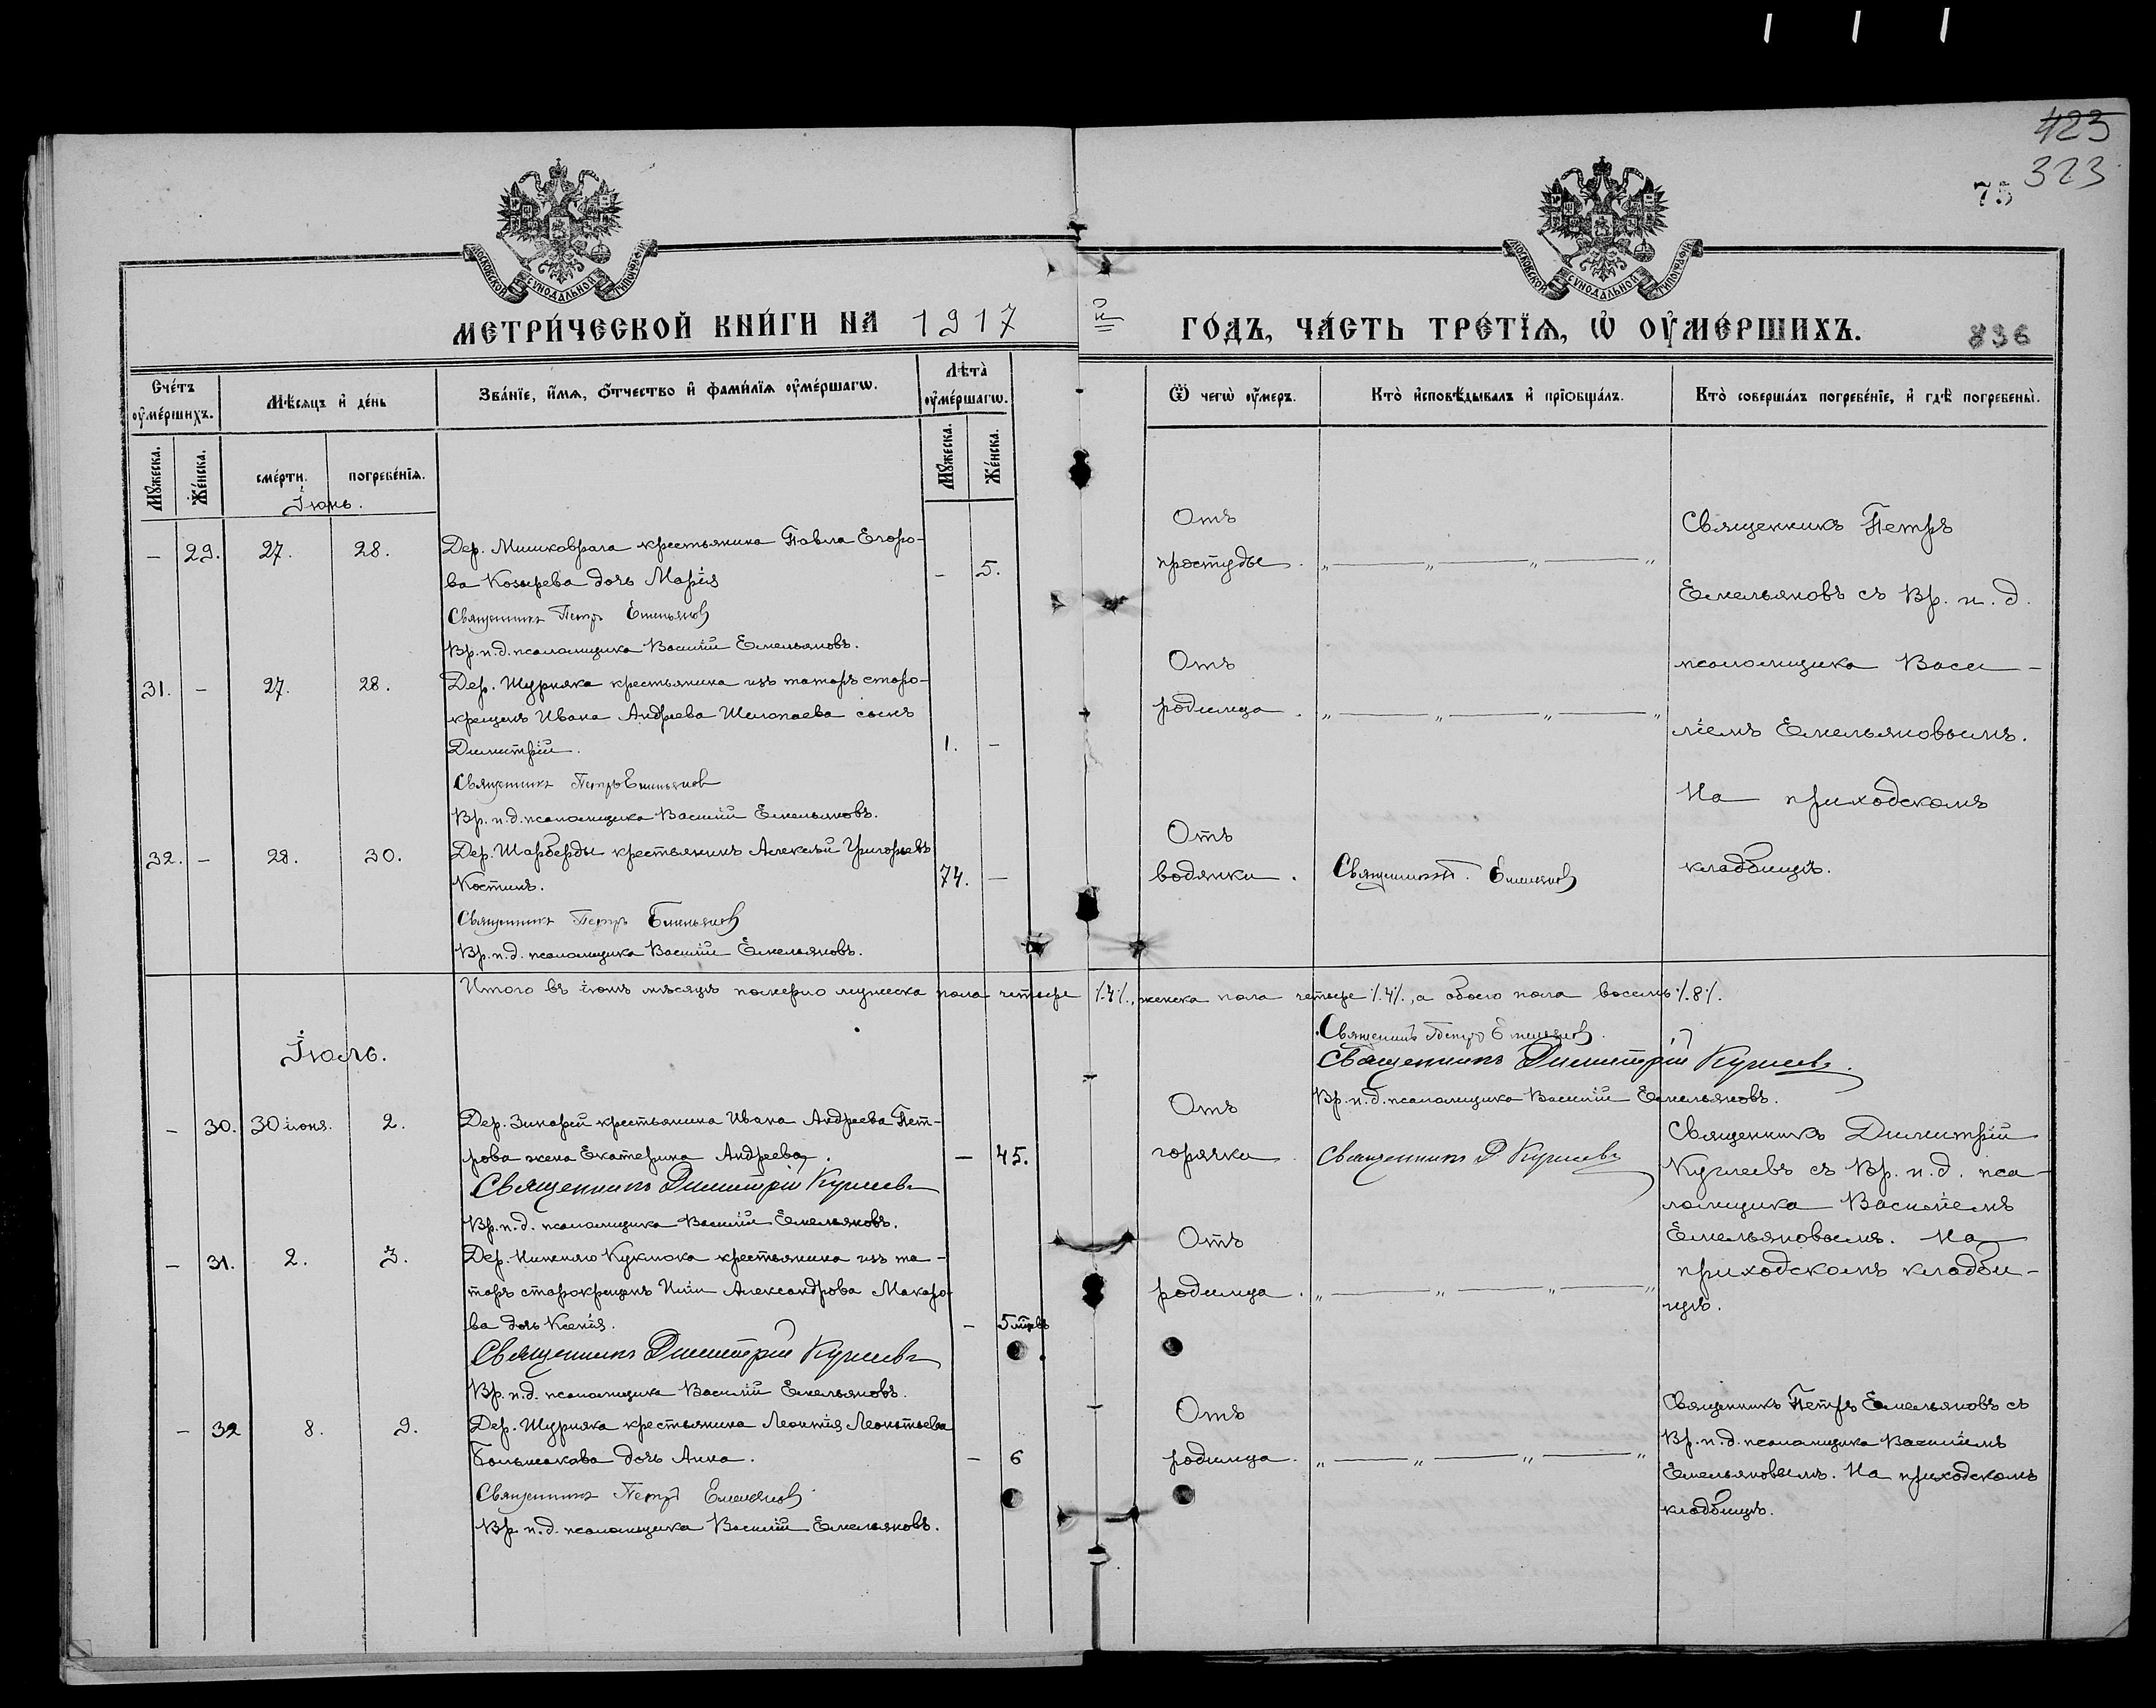 423
323
75
МОСКОВСКОЙ СѴНОДАЛЬНОЙ ТИПОГРАФІИ
МОСКОВСКОЙ СѴНОДАЛЬНОЙ ТИПОГРАФІИ
МЕТРИ́ЧЕСКОЙ КНИ́ГИ НА 1917 й ГО́ДЪ, ЧА́СТЬ ТРЕ́ТЇѦ, Ѡ҆ ОУ҆МЕ́РШИХЪ.
836
Сче́тъ оу҆ме́ршихъ.
Мѣ́сѧцъ и҆ де́нь
Зва́нїе, и҆́мѧ, о҆́тчество и҆ фами́лїѧ оу҆ме́ршагѡ.
Лѣ́та̀ оу҆ме́ршагѡ.
Ѿ чегѡ̀ оу҆́меръ.
Кто̀ и҆сповѣ́дывалъ и҆ прїѡбща́лъ.
Кто̀ соверша́лъ погребе́нїе, и҆ гдѣ̀ погребены̀.
Мꙋ́жеска.
Же́нска.
сме́рти.
погребе́нїѧ.
Мꙋ́жеска.
Же́нска.
Іюнь.
– 29. 27. 28. Дер. Мишковрага крестьянина Павла Егоро-
ва Козырева дочь Марія – 5.
Священникъ Петръ Емельяновъ
Вр. и. д. псаломщика Василій Емельяновъ.
Отъ
простуды. „ — „ — „ — „
Священникъ Петръ
Емельяновъ съ Вр. и. д.
псаломщика Васи-
ліемъ Емельяновымъ.
На приходскомъ
кладбищѣ.
31. – 27. 28. Дер. Шурняка крестьянина изъ татаръ старо-
крещенъ Ивана Андреева Шелопаева сынъ
Димитрій. 1. –
Священникъ Петръ Емельяновъ
Вр. и. д. псаломщика Василій Емельяновъ.
Отъ
родимца. „ — „ — „ — „
32. – 28. 30. Дер. Шарберды крестьянинъ Алексѣй Григорьевъ
Костинъ. 74. –
Священникъ Петръ Емельяновъ
Вр. и. д. псаломщика Василій Емельяновъ.
Отъ
водянки. Священникъ П. Емельяновъ
Итого въ іюнѣ мѣсяцѣ померло мужеска пола четыре /.4/., женска пола четыре /.4/., а обоего пола восемь /.8/.
Священникъ Петръ Емельяновъ.
Священникъ Димитрій Кузмеевъ.
Вр. и. д. псаломщика Василій Емельяновъ.
Іюль.
– 30. 30 іюня. 2. Дер. Зинарей крестьянина Ивана Андреева Пет-
рова жена Екатерина Андреева. – 45.
Священникъ Димитрій
Вр. и. д. псаломщика Василій Емельяновъ.
Отъ
горячки. Священникъ Д
Священникъ Димитрій
съ Вр. и. д. пса-
ломщика Василіемъ
Емельяновымъ. На
приходскомъ кладби-
щѣ.
– 31. 2. 3. Дер. Нижняго Кукмока крестьянина изъ та-
таръ старокрещенъ Александрова Макаро-
ва дочь Ксенія. – 5 мѣсъ
Священникъ Димитрій
Вр. и. д. псаломщика Василій Емельяновъ.
Отъ
родимца. „ — „ — „ — „
– 32 8. 9. Дер. Шурняка крестьянина Леонтія Леонтьева
Большакова дочь Анна. – 6
Священникъ Петръ Емельяновъ
Вр. и. д. псаломщика Василій Емельяновъ.
Отъ
родимца. „ — „ — „ — „
Священникъ Петръ Емельяновъ съ
Вр. и. д. псаломщика Василіемъ
Емельяновымъ. На приходскомъ
кладбищѣ.